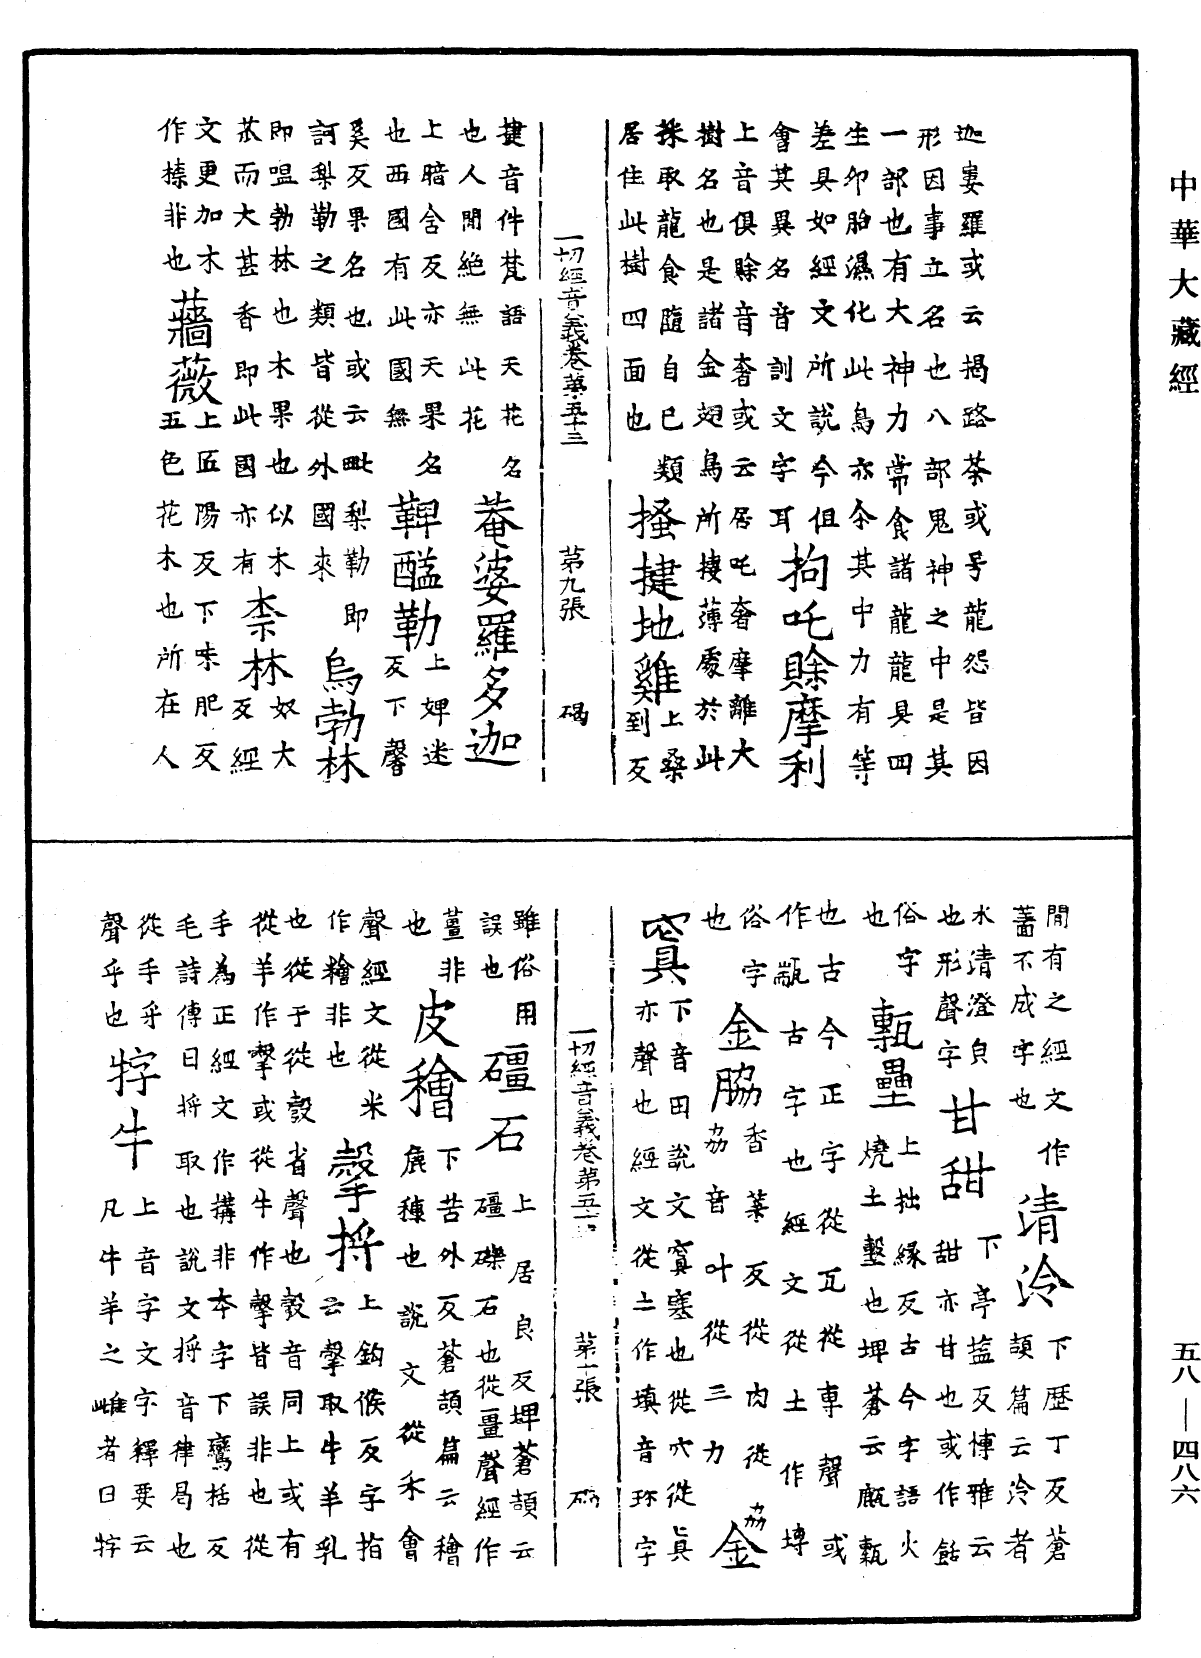 中華大藏經
迦婁羅或云揭路荼或号龍怨皆因
形因事立名也八部鬼神之中是其
一部也有大神力常食諸龍龍具四
生卵胎濕化此鳥亦尒其中力有等
差具如經文所說今但拘吒賖摩利
會其異名音訓文字耳
上音俱賖音奢或云居吒奢摩離大
樹名也是諸金翅鳥所捿薄處於此
採取龍食隨自已類搔揵地雞上桑
居住此樹四面也到反
一切經音義卷苐五十三 苐九張 碣
揵音件梵語天花名菴婆羅多迦
也人間絶無此花
上暗含反亦天果名鞞醯勒上婢迷
也西國有此國無反下馨
奚反果名也或云毗梨勒即烏勃林
訶梨勒之類皆從外國來
即嗢勃林也木果也似木柰林奴大
苽而大甚香即此國亦有反經
文更加木薔薇上匠陽反下味肥反
作㮏非也五色花木也所在人
間有之經文作清泠下歷丁反蒼
蕃不成字也頡篇云泠者
水清澄皃甘甜下亭藍反愽雅云
也形聲字甜亦甘也或作餂
俗字甎壘上拙緣反古今字語火
也燒土墼也埤蒼云甋甎
也古今正字從瓦從專聲或
作㼷古字也經文從土作塼
俗字金脇香業反從肉從劦金
也劦音叶從三力
寘下音田說文寘塞也從穴從真
亦聲也經文從土作填音珎字
一切經音義卷第五十三 苐十張 碣
雖俗用礓石上居良反埤蒼頡云
誤也礓礫石也從畺聲經作
薑非皮穭下苦外反蒼頡篇云穭
也麁穅也說文從禾會
聲經文從米㝅捋上鈎候反字指
作糩非也云㝅取牛羊乳
也從子從㱿省聲也㱿音同上或有
從羊作㝅或從牛作㝅皆誤非也從
手為正經文作搆非本字下鸞括反
毛詩傳曰捋取也說文捋音律局也
從手寽牸牛上音字文字釋要云
聲乎也凡牛羊之雌者曰牸
五八—四八六